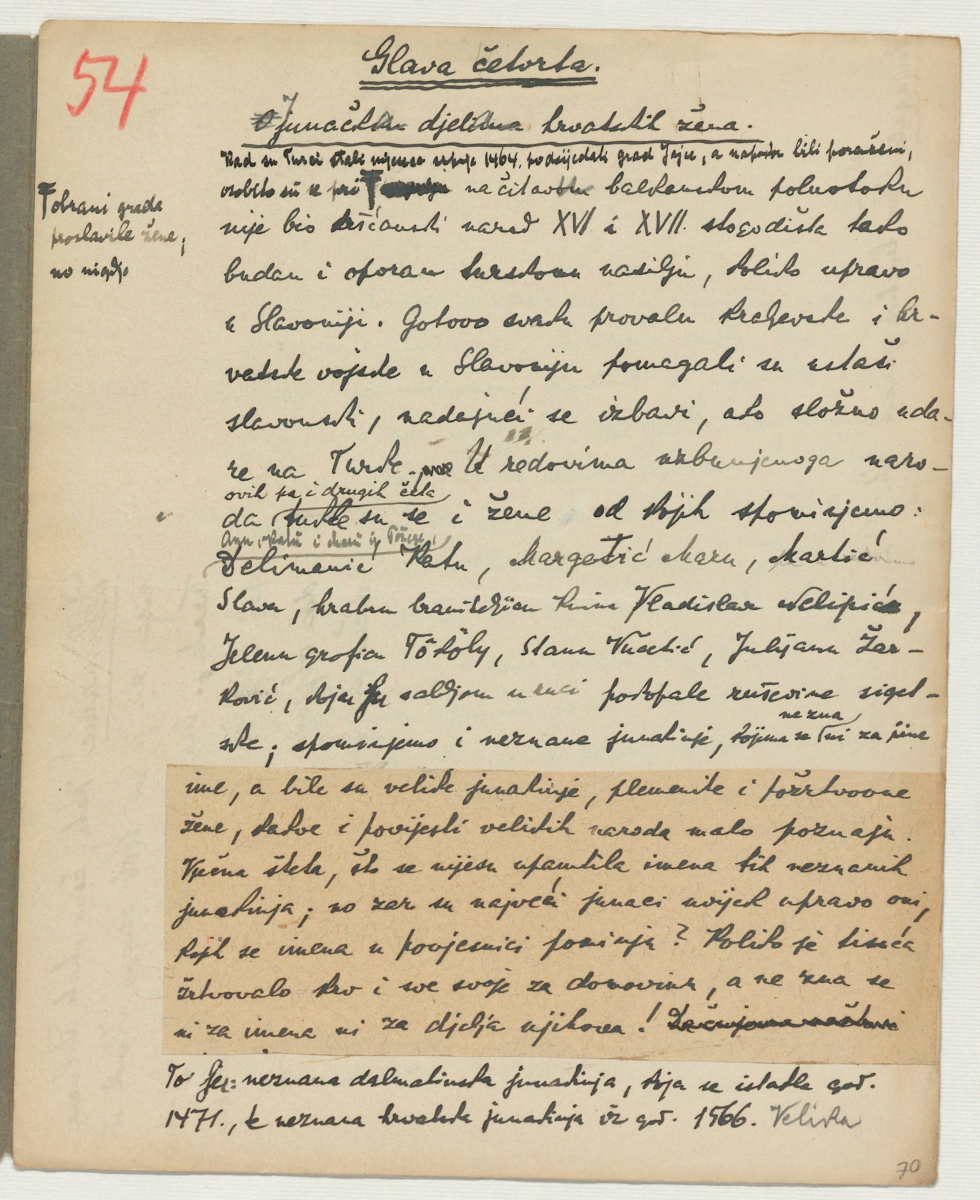 54
Glava četvrta.
Junačka djela hrvatskih žena.
Kad su Turci stali mjeseca srpnja 1464. podsijedati grad Jajce, a napokon bili poraženi,
osobito su se pri
obrani grada
proslavile žene;
no nigdje
na čitavom balkanskom poluotoku
nije bio kršćanski narod XVI i XVII. stogodišta tako
budan i oporan turskomu nasilju, koliko upravo
u Slavoniji. Gotovo svaku provalu kraljevske i hr-
vatske vojske u Slavoniju pomagali su ustaši
slavonski, nadajući se izbavi, ako složno uda-
re na Turke. U redovima uzbunjenoga naro-
da ovih pa i drugih četa tukle su se i žene od kojih spominjemo:
Delimanić Katu, Margetić Maru, Martić
Slavu, hrabru braniteljicu Vladislav Nelipić,
Jelenu groficu Tököly, Stanu Vučetić, Julijanu Žar-
ković, koja je sabljom u ruci potopale ruševine siget-
ske; spominjemo i neznane junakinje, kojima se nezna ni za
ime, a bile su velike junakinje, plemenite i požrtvovne
žene, kakve i povijesti velikih naroda malo poznaju.
Vječna šteta, što se nijesu upamtila imena tih neznanih
junakinja; no zar su najveći junaci uvijek upravo oni,
kojih se imena u povjesnici pominju? Koliko je tisuća
žrtvovalo krv i sve svoje za domovinu, a ne zna se
ni za imena ni za djelja njihova!
To je: neznana dalmatinska junakinja, koja se istakla god.
1471., te neznana hrvatska junakinja iz god. 1566. Velika
70